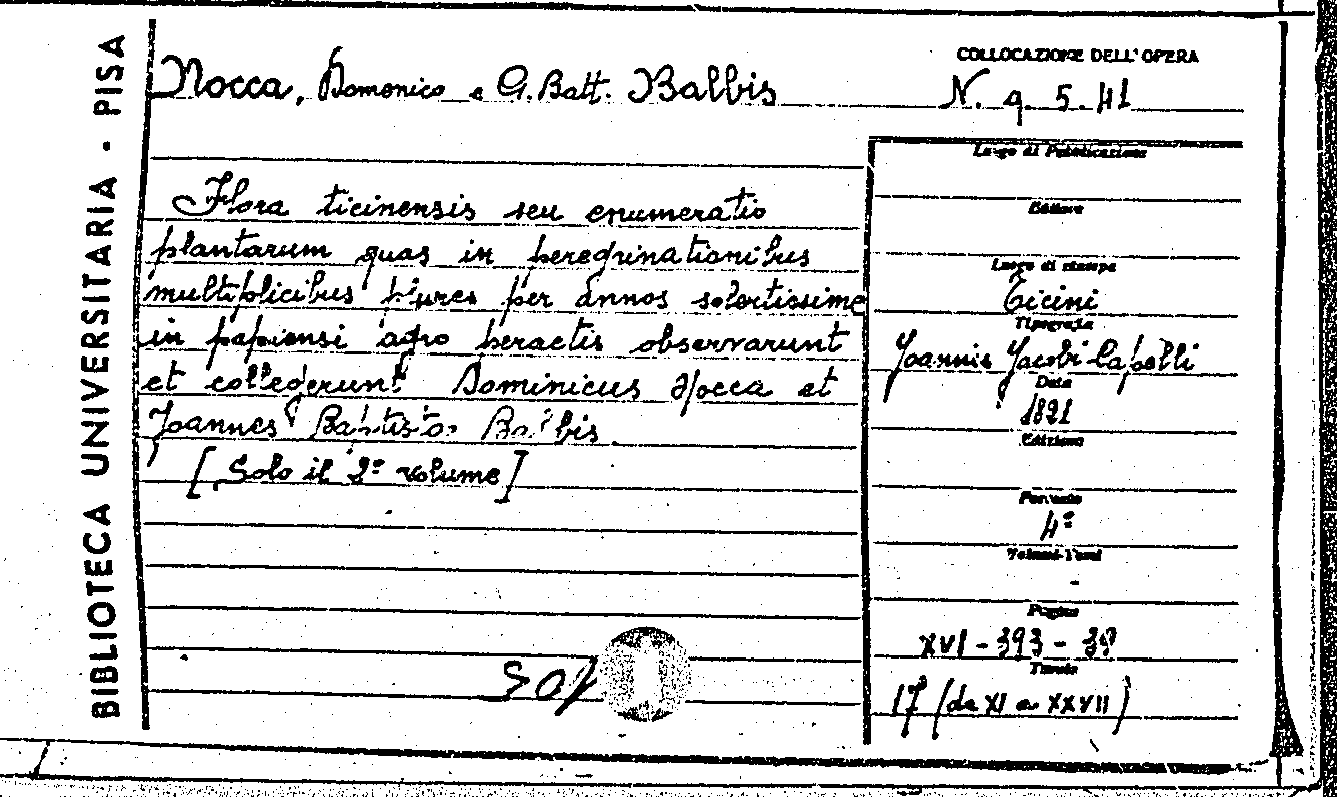 BIBLIOTECA UNIVERSITARIA - PISA
Nocca, Domenico e G. Batt. Balbis
COLLOCAZIONE DELL'OPERA
N. q. 5. 41
Flora ticinensis seu enumeratio
plantarum quas in peregrinationibus
multiplicibus plures per annos solertissime
in papiensi agro peractis observarunt
et collegerunt Dominicus Nocca et
Joannes Baptista Balbis
[Solo il 2º volume]
Luogo di Pubblicazione
Editore
Luogo di stampa
Ticini
Tipografia
Joannis Jacobi Capelli
Data
1821
Edizione
Formato
4º
Volumi-Tomi
-
Pagine
XVI - 393 - 39
Tavole
17 (da XI a XXVII)